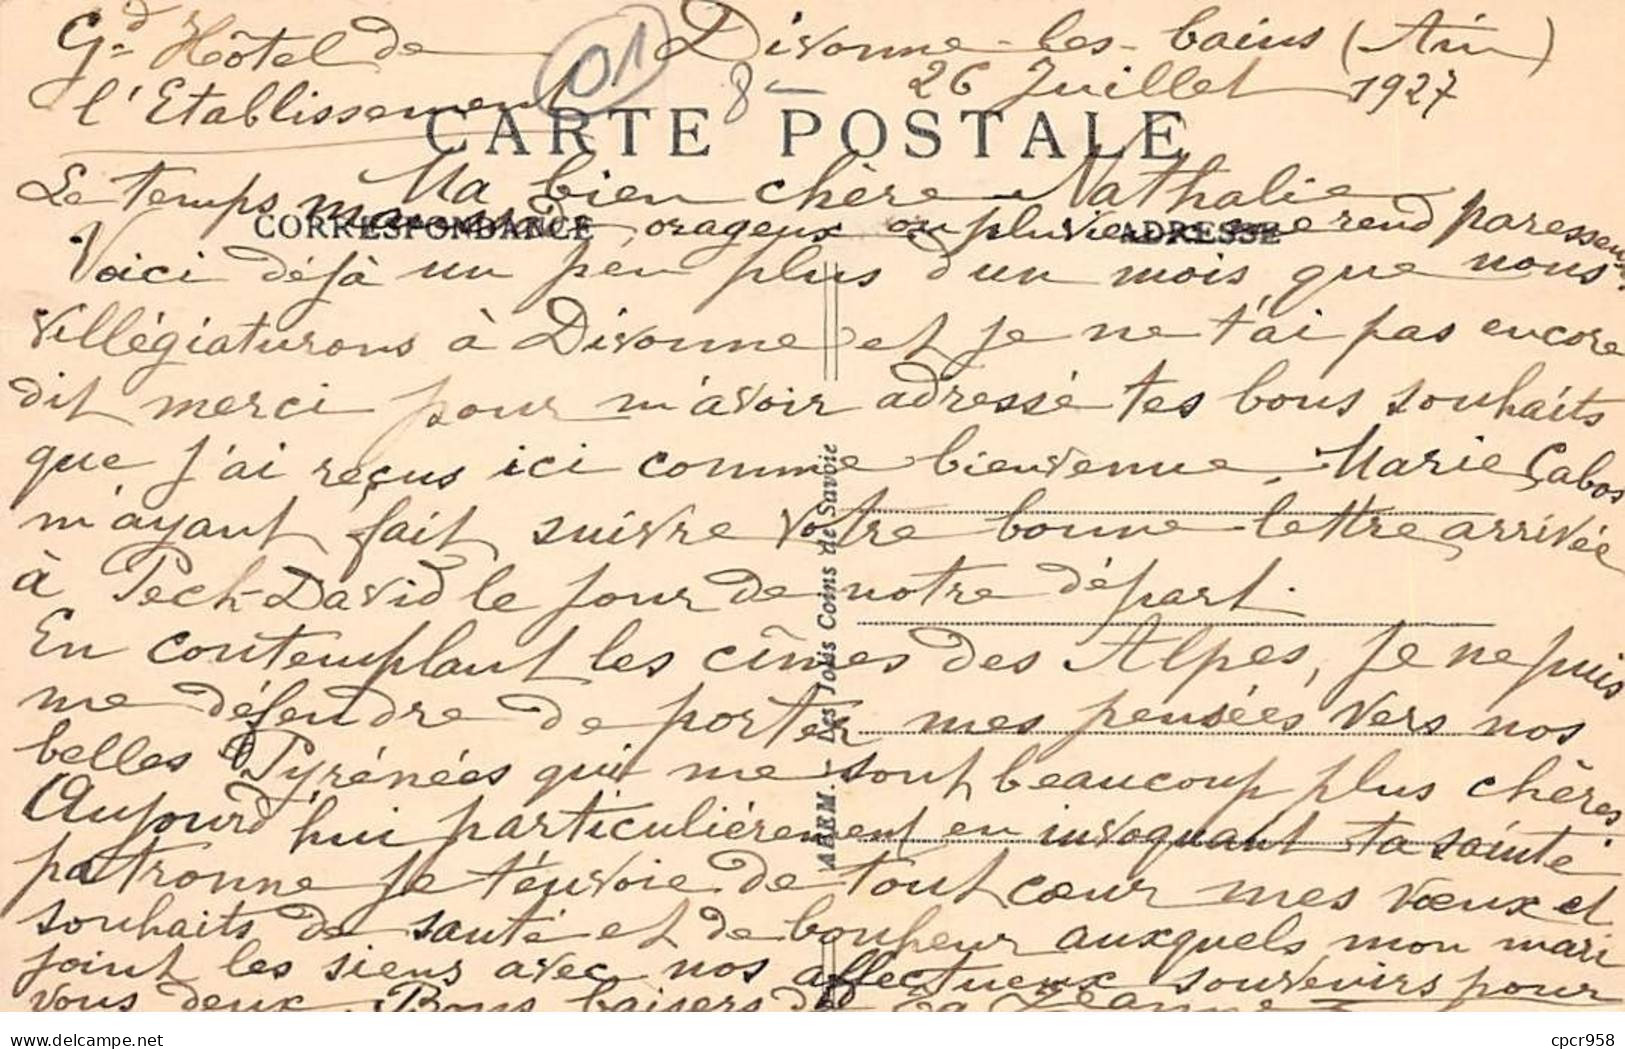 Gd Hôtel de
l'Etablissement
01
8-
Divonne-les-bains (Ain)
26 Juillet 1927
CARTE POSTALE
Ma bien chère Nathalie
Le temps orageux ou pluvieux me rend paresseuse.
CORRESPONDANCE
ADRESSE
Voici déjà un peu plus d'un mois que nous
villégiaturons à Divonne et je ne t'ai pas encore
dit merci pour m'avoir adressé tes bons souhaits
que j'ai reçus ici comme bienvenue, Marie Cabos
m'ayant fait suivre votre bonne lettre arrivée
à Pech-David le jour de notre départ.
En contemplant les cîmes des Alpes, je ne puis
me défendre de porter mes pensées vers nos
belles Pyrénées qui me sont beaucoup plus chères.
Aujourd'hui particulièrement en invoquant ta sainte
patronne je t'envoie de tout cœur mes vœux et
souhaits de santé et de bonheur auxquels mon mari
joint les siens avec nos affectueux souvenirs pour
vous deux. Bons baisers de ta Jeanne
ABEM. - Les Jolis Coins de Savoie
delcampe.net
cpcr958